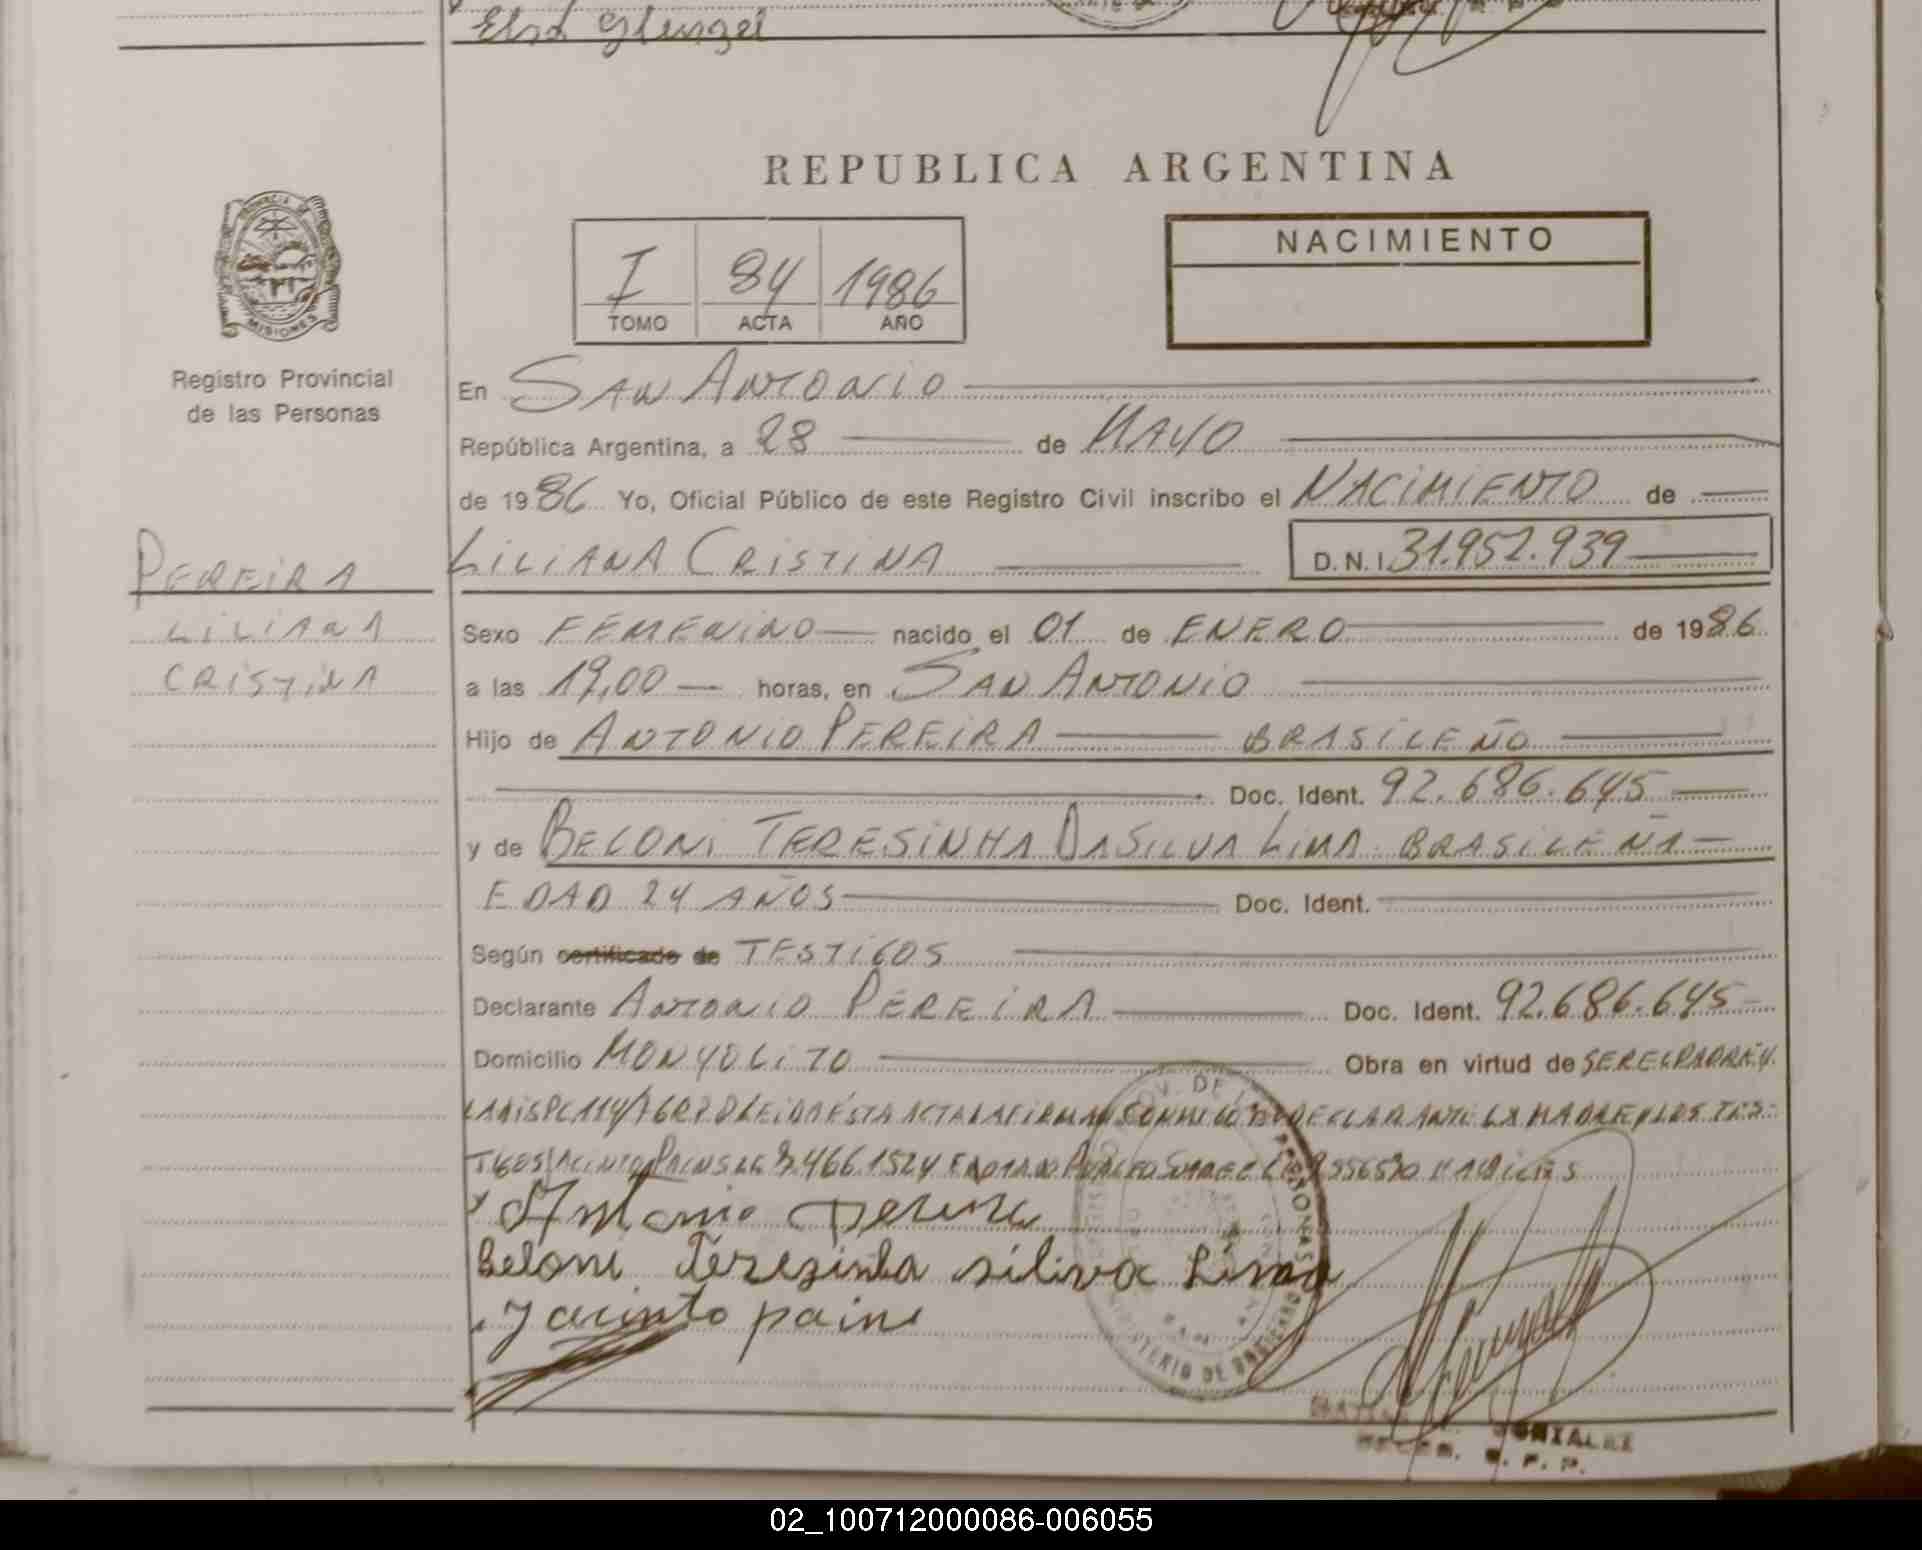 Elsa Glenzel
REPUBLICA ARGENTINA
PROVINCIA DE
MISIONES
Registro Provincial
de las Personas
I 84 1986
TOMO ACTA AÑO
NACIMIENTO
En SAN ANTONIO
República Argentina, a 28 de MAYO
de 1986 Yo, Oficial Público de este Registro Civil inscribo el NACIMIENTO de
PEREIRA
LILIANA
CRISTINA
LILIANA CRISTINA D.N.I. 31.952.939
Sexo FEMENINO nacido el 01 de ENERO de 1986
a las 19,00 horas, en SAN ANTONIO
Hijo de ANTONIO PEREIRA BRASILEÑO
Doc. Ident. 92.686.645
y de BELONI TERESINHA DA SILVA LIMA. BRASILEÑA
EDAD 24 AÑOS Doc. Ident.
Según certificado de TESTIGOS
Declarante ANTONIO PEREIRA Doc. Ident. 92.686.645
Domicilio MONYOLITO Obra en virtud de SER EL PADRE Y
LA DISPC 114/76 RPP LEIDA ESTA ACTA LA FIRMAN CONMIGO EL DECLARANTE LA MADRE Y LOS TES-
TIGOS JACINTO PAINS
Antonio Pereira
Beloni Terezinha siliva Lima
Jacinto pains
PERSONAS
MINISTERIO DE
GONZALEZ
02_100712000086-006055